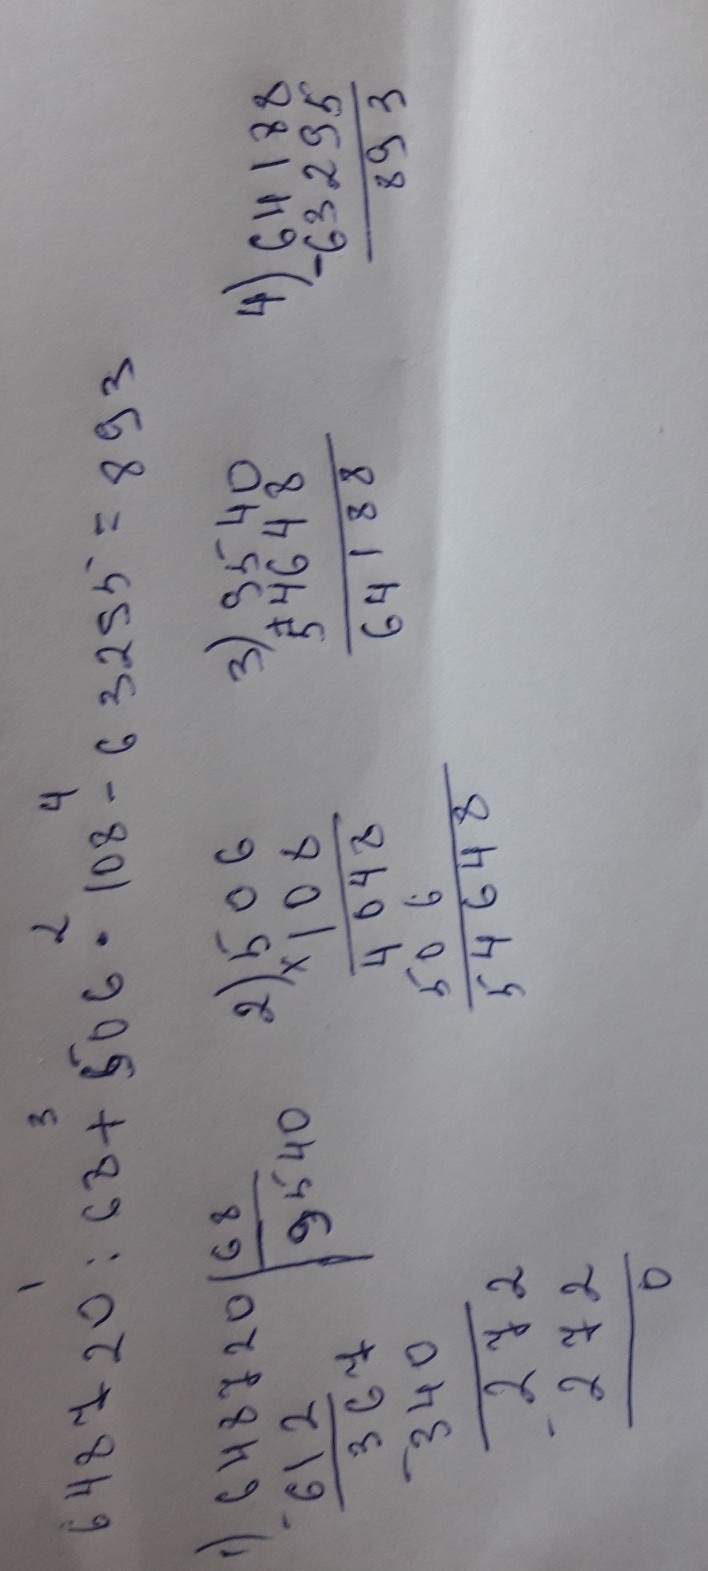 1 3 2 4
648720 : 68 + 506 · 108 - 63295 = 893
1) 648720 | 68
9540
-612
367
-340
272
-272
0
2) 506
x 108
4048
506
54648
3) 9540
+
54648
64188
4) 64188
-63295
893